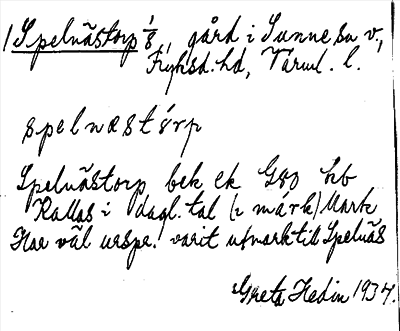 1 Spelnästorp 1/8, gård i Sunne sn v.,
Fryksd. hd, Värml. l.
spelnæstórp
Spelnästorp bek ek G80 kb
Kallas i dagl. tal (i márk) Mark
Har väl urspr. varit utmark till Spelnäs
Greta Hedin 1934.